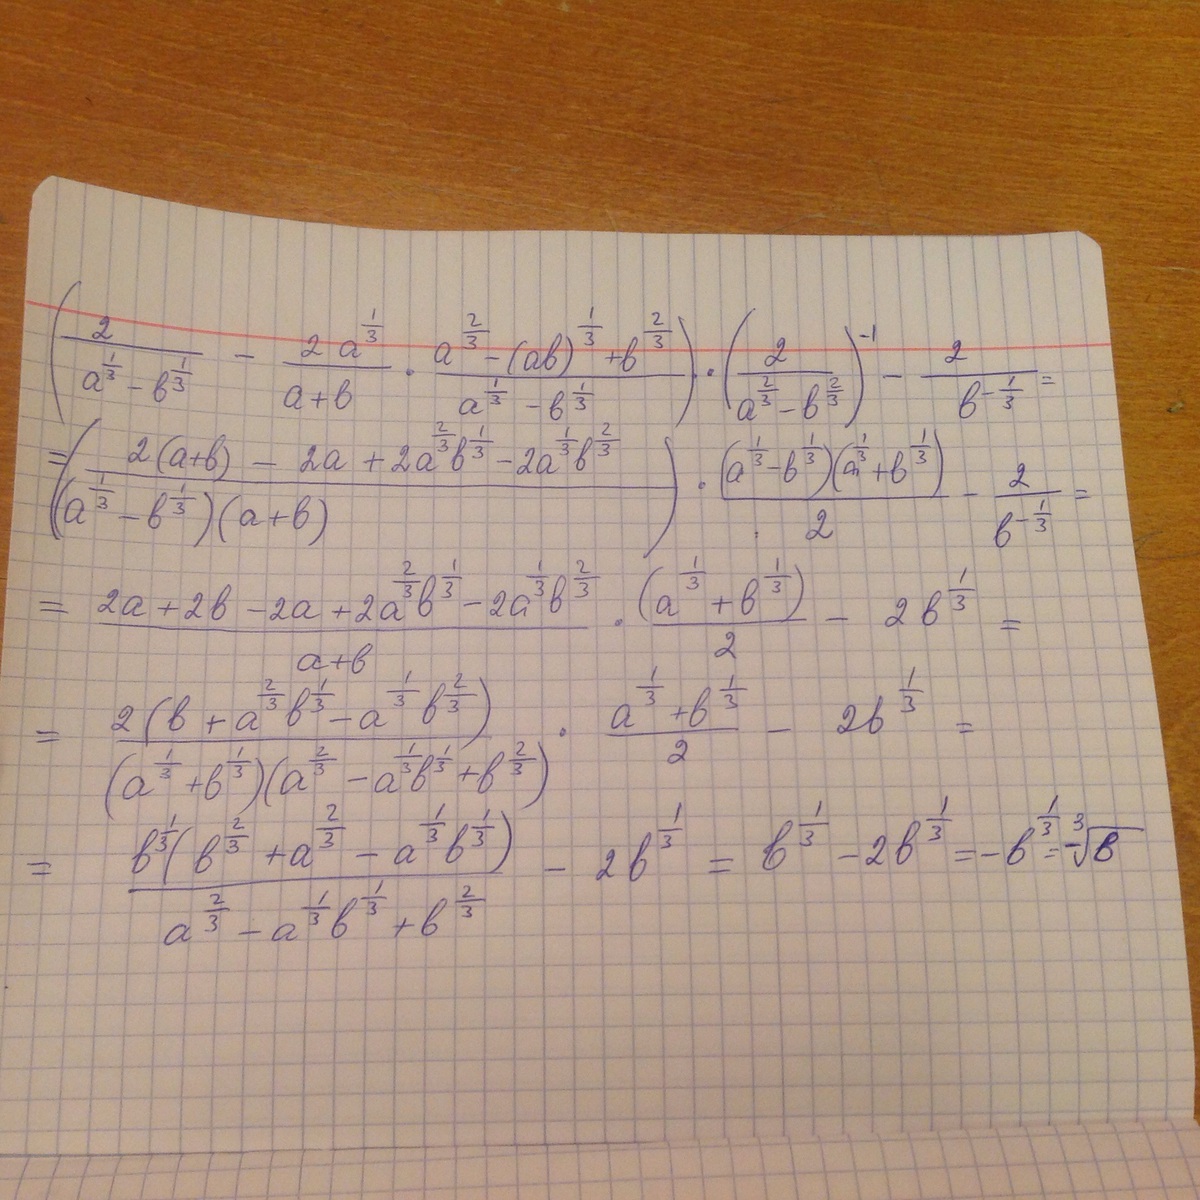 (2/(a^(1/3) - b^(1/3)) - 2a^(1/3)/(a+b) · (a^(2/3) - (ab)^(1/3) + b^(2/3))/(a^(1/3) - b^(1/3))) · (2/(a^(2/3) - b^(2/3)))^(-1) - 2/b^(-1/3) =
= ((2(a+b) - 2a + 2a^(2/3)b^(1/3) - 2a^(1/3)b^(2/3))/((a^(1/3) - b^(1/3))(a+b))) · ((a^(1/3) - b^(1/3))(a^(1/3) + b^(1/3)))/2 - 2/b^(-1/3) =
= (2a + 2b - 2a + 2a^(2/3)b^(1/3) - 2a^(1/3)b^(2/3))/(a+b) · (a^(1/3) + b^(1/3))/2 - 2b^(1/3) =
= 2(b + a^(2/3)b^(1/3) - a^(1/3)b^(2/3))/((a^(1/3) + b^(1/3))(a^(2/3) - a^(1/3)b^(1/3) + b^(2/3))) · (a^(1/3) + b^(1/3))/2 - 2b^(1/3) =
= b^(1/3)(b^(2/3) + a^(2/3) - a^(1/3)b^(1/3))/(a^(2/3) - a^(1/3)b^(1/3) + b^(2/3)) - 2b^(1/3) = b^(1/3) - 2b^(1/3) = -b^(1/3) = -∛b